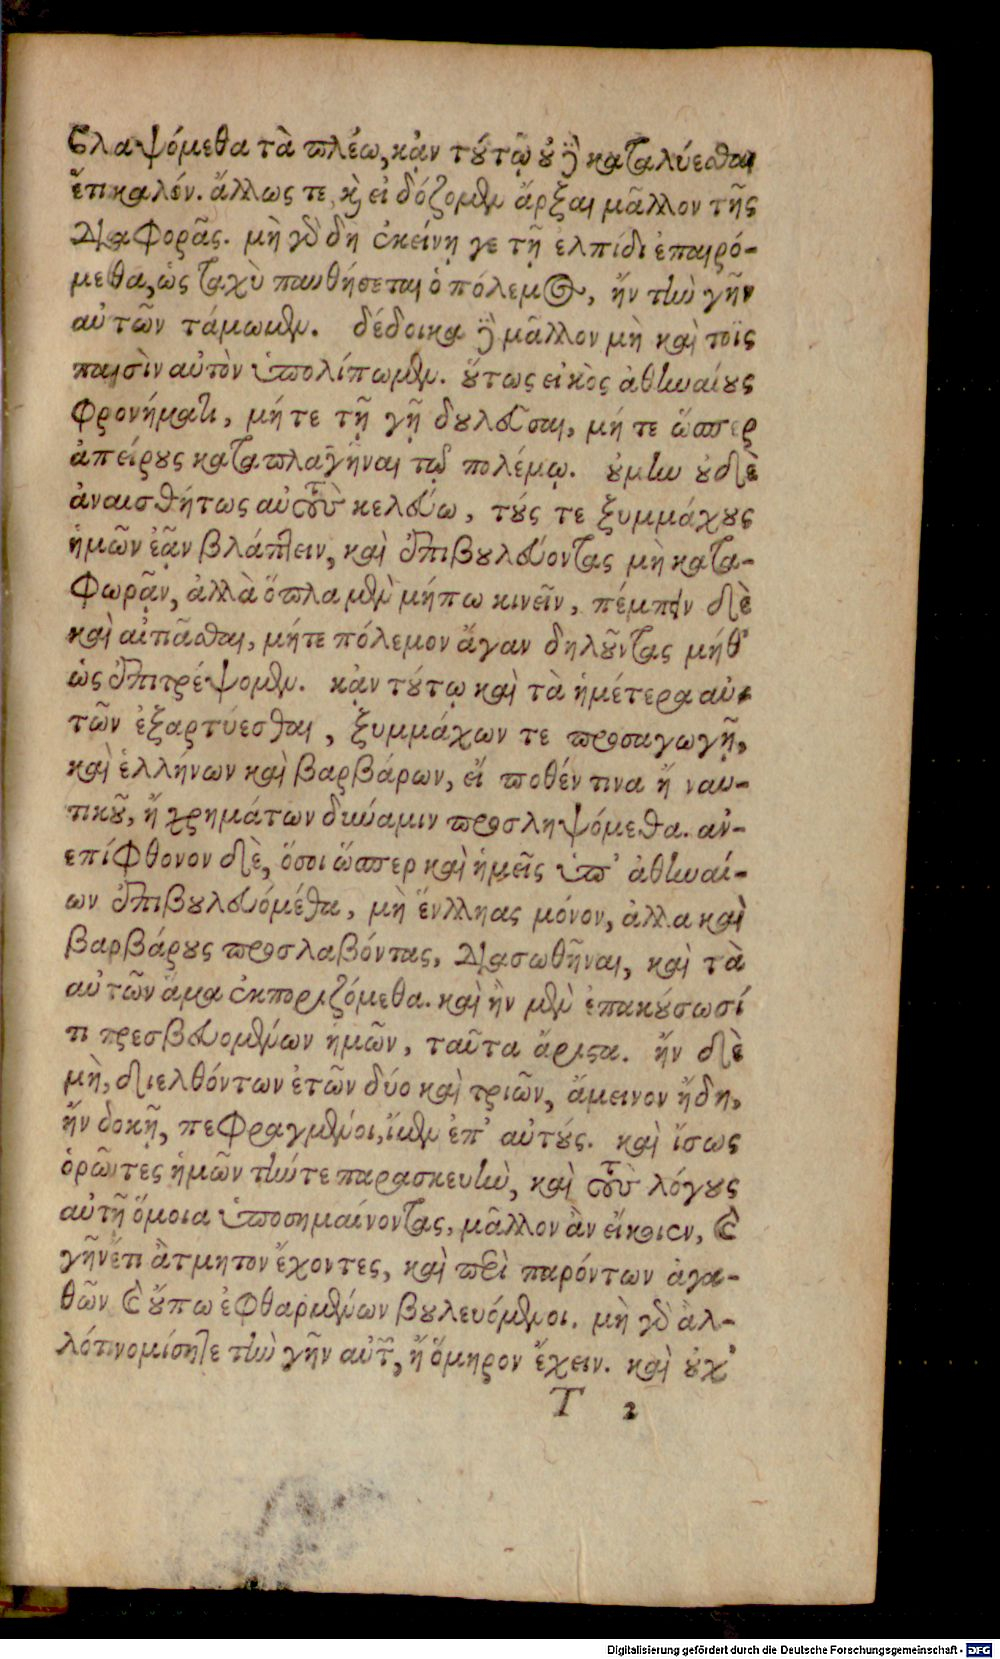 βλαψόμεθα τὰ πλέω, κᾀν τούτῳ οὐδὲ καταλύεσθαι
ἔτι καλόν. ἄλλως τε καὶ εἰ δόξομεν ἄρξαι μᾶλλον τῆς
διαφορᾶς. μὴ γὰρ δὴ ἐκείνῃ γε τῇ ἐλπίδι ἐπαιρό-
μεθα, ὡς ταχὺ παυθήσεται ὁ πόλεμος, ἤν τὴν γῆν
αὐτῶν τάμωμεν. δέδοικα δὲ μᾶλλον μὴ καὶ τοῖς
παισὶν αὐτὸν ὑπολίπωμεν. οὕτως εἰκὸς ἀθηναίους
φρονήματι, μήτε τῇ γῇ δουλεῦσαι, μήτε ὥσπερ
ἀπείρους καταπλαγῆναι τῷ πολέμῳ. οὐ μὴν οὐδὲ
ἀναισθήτως αὐτοὺς κελεύω, τούς τε ξυμμάχους
ἡμῶν ἐᾷν βλάπτειν, καὶ ἐπιβουλεύοντας μὴ κατα-
φωρᾷν, ἀλλὰ ὅπλα μὲν μήπω κινεῖν, πέμπειν δὲ
καὶ αἰτιᾶσθαι, μήτε πόλεμον ἄγαν δηλοῦντας μήθ'
ὡς ἐπιτρέψομεν. κᾀν τούτῳ καὶ τὰ ἡμέτερα αὐ-
τῶν ἐξαρτύεσθαι, ξυμμάχων τε προσαγωγῇ,
καὶ ἑλλήνων καὶ βαρβάρων, εἴ ποθέν τινα ἢ ναυ-
τικοῦ, ἢ χρημάτων δύναμιν προσληψόμεθα. ἀν-
επίφθονον δὲ, ὅσοι ὥσπερ καὶ ἡμεῖς ὑπ' ἀθηναί-
ων ἐπιβουλευόμεθα, μὴ ἕλληνας μόνον, ἀλλα καὶ
βαρβάρους προσλαβόντας, διασωθῆναι, καὶ τὰ
αὐτῶν ἅμα ἐκποριζόμεθα. καὶ ἢν μὲν ἐπακούσωσί
τι πρεσβευομένων ἡμῶν, ταῦτα ἄριστα. ἢν δὲ
μὴ, διελθόντων ἐτῶν δύο καὶ τριῶν, ἄμεινον ἤδη,
ἢν δοκῇ, πεφραγμένοι, ἴμεν ἐπ' αὐτούς. καὶ ἴσως
ὁρῶντες ἡμῶν τήν τε παρασκευὴν, καὶ τοὺς λόγους
αὐτῇ ὅμοια ὑποσημαίνοντας, μᾶλλον ἂν εἴκοιεν, καὶ
γῆν ἔτι ἄτμητον ἔχοντες, καὶ περὶ παρόντων ἀγα-
θῶν καὶ οὔπω ἐφθαρμένων βουλευόμενοι. μὴ γὰρ ἄλ-
λό τι νομίσητε τὴν γῆν αὐτῶν, ἢ ὅμηρον ἔχειν. καὶ οὐχ'
T 2
Digitalisierung gefördert durch die Deutsche Forschungsgemeinschaft - DFG